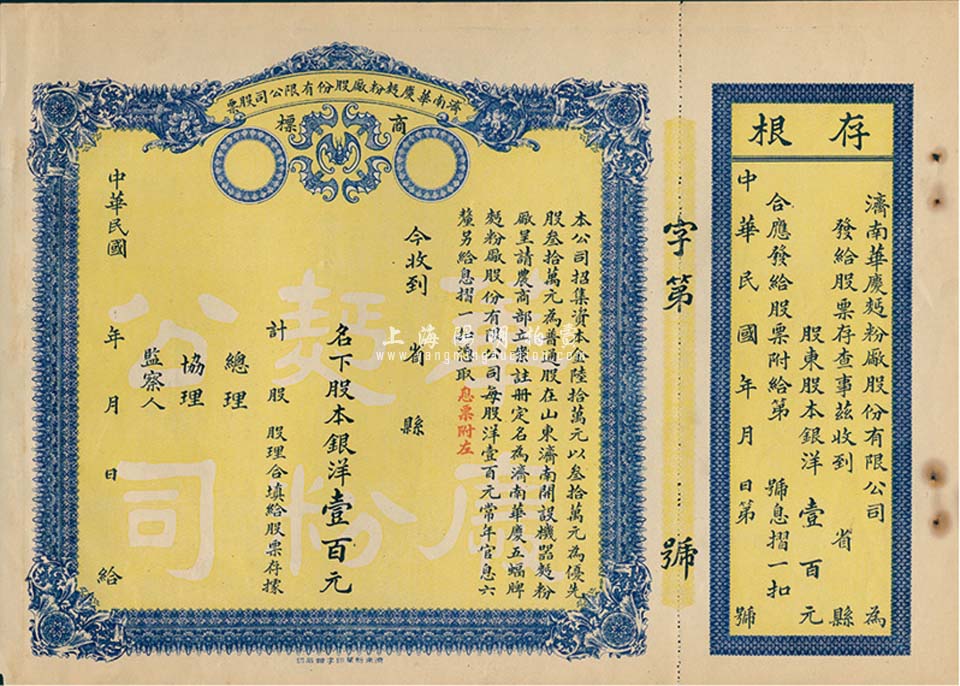 濟南華慶麪粉廠股份有限公司股票
商標
本公司招集資本金陸拾萬元以叁拾萬元為優先
股叁拾萬元為普通股在山東濟南開設機器麪粉
廠呈請農商部立案註册定名為濟南華慶五蝠牌
麪粉廠股份有限公司每股洋壹百元常年官息六
釐另給息摺一扣憑取息票附左
今收到 省 縣
名下股本銀洋壹百元
計 股 股理合填給股票存據
總理
協理
監察人
中華民國 年 月 日 給
字第 號
存根
濟南華慶麪粉廠股份有限公司為
發給股票存查事茲收到 省 縣
股東股本銀洋壹百元
合應發給股票附給第 號息摺一扣
中華民國 年 月 日第 號
華慶麪粉廠
公司
上海陽明拍賣
www.yangmingauctions.com